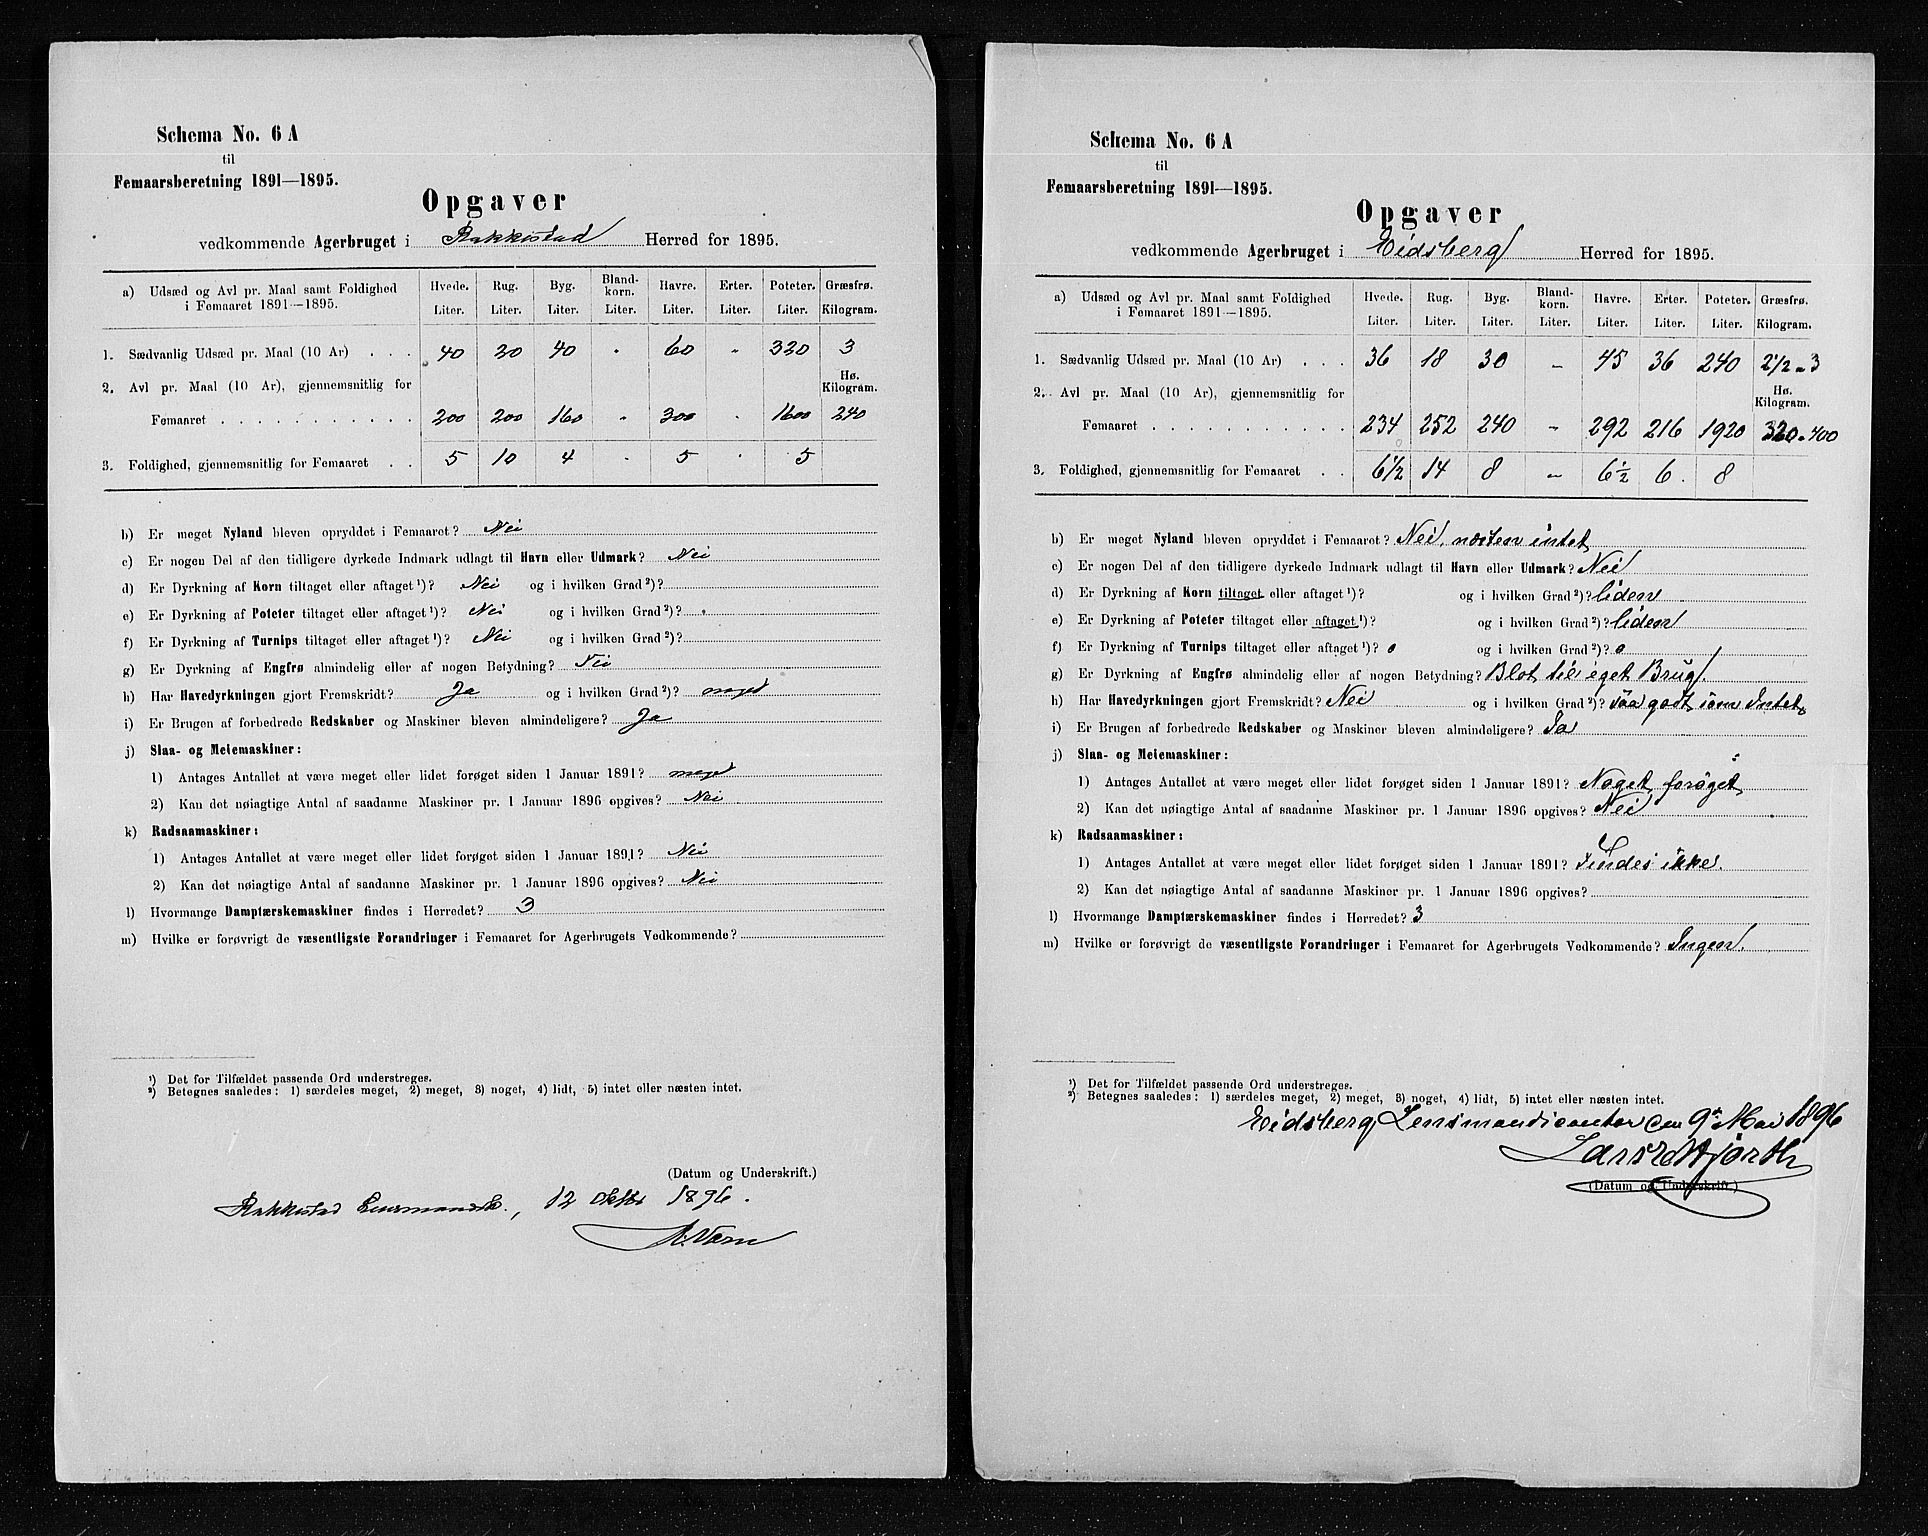 Schema No. 6 A
til
Femaarsberetning 1891—1895.
Opgaver
vedkommende Agerbruget i Rakkestad Herred for 1895.
a) Udsæd og Avl pr. Maal samt Foldighed i Femaaret 1891—1895. Hvede. Liter. Rug. Liter. Byg. Liter. Bland-korn. Liter. Havre. Liter. Erter. Liter. Poteter. Liter. Græsfrø. Kilogram.
1. Sædvanlig Udsæd pr. Maal (10 Ar) . . . 40 20 40 " 60 " 320 3
2. Avl pr. Maal (10 Ar), gjennemsnitlig for Hø. Kilogram.
Femaaret . . . . . . . . . . . 200 200 160 " 300 " 1600 240
3. Foldighed, gjennemsnitlig for Femaaret . . 5 10 4 " 5 " 5
b) Er meget Nyland bleven opryddet i Femaaret? Nei
c) Er nogen Del af den tidligere dyrkede Indmark udlagt til Havn eller Udmark? Nei
d) Er Dyrkning af Korn tiltaget eller aftaget ¹)? Nei og i hvilken Grad ²)?
e) Er Dyrkning af Poteter tiltaget eller aftaget ¹)? Nei og i hvilken Grad ²)?
f) Er Dyrkning af Turnips tiltaget eller aftaget ¹)? Nei og i hvilken Grad ²)?
g) Er Dyrkning af Engfrø almindelig eller af nogen Betydning? Nei
h) Har Havedyrkningen gjort Fremskridt? Ja og i hvilken Grad ²)? noget
i) Er Brugen af forbedrede Redskaber og Maskiner bleven almindeligere? Ja
j) Slaa- og Meiemaskiner:
1) Antages Antallet at være meget eller lidet forøget siden 1 Januar 1891? meget
2) Kan det nøiagtige Antal af saadanne Maskiner pr. 1 Januar 1896 opgives? Nei
k) Radsaamaskiner:
1) Antages Antallet at være meget eller lidet forøget siden 1 Januar 1891? Nei
2) Kan det nøiagtige Antal af saadanne Maskiner pr. 1 Januar 1896 opgives? Nei
l) Hvormange Damptærskemaskiner findes i Herredet? 3
m) Hvilke er forøvrigt de væsentligste Forandringer i Femaaret for Agerbrugets Vedkommende?
¹) Det for Tilfældet passende Ord understreges.
²) Betegnes saaledes: 1) særdeles meget, 2) meget, 3) noget, 4) lidt, 5) intet eller næsten intet.
(Datum og Underskrift.)
Rakkestad Lensmandsk., 12 1896.
Schema No. 6 A
til
Femaarsberetning 1891—1895.
Opgaver
vedkommende Agerbruget i Eidsberg Herred for 1895.
a) Udsæd og Avl pr. Maal samt Foldighed i Femaaret 1891—1895. Hvede. Liter. Rug. Liter. Byg. Liter. Bland-korn. Liter. Havre. Liter. Erter. Liter. Poteter. Liter. Græsfrø. Kilogram.
1. Sædvanlig Udsæd pr. Maal (10 Ar) . . . 36 18 30 " 45 36 240 2 1/2 a 3
2. Avl pr. Maal (10 Ar), gjennemsnitlig for Hø. Kilogram.
Femaaret . . . . . . . . . . . 234 252 240 " 292 216 1920 320 a 400
3. Foldighed, gjennemsnitlig for Femaaret . . 6 1/2 14 8 " 6 1/2 6. 8
b) Er meget Nyland bleven opryddet i Femaaret? Nei, næsten intet
c) Er nogen Del af den tidligere dyrkede Indmark udlagt til Havn eller Udmark? Nei
d) Er Dyrkning af Korn tiltaget eller aftaget ¹)? og i hvilken Grad ²)? liden
e) Er Dyrkning af Poteter tiltaget eller aftaget ¹)? og i hvilken Grad ²)? liden
f) Er Dyrkning af Turnips tiltaget eller aftaget ¹)? o og i hvilken Grad ²)? o
g) Er Dyrkning af Engfrø almindelig eller af nogen Betydning? Blot til eget Brug
h) Har Havedyrkningen gjort Fremskridt? Nei og i hvilken Grad ²)? saa godt som Intet
i) Er Brugen af forbedrede Redskaber og Maskiner bleven almindeligere? Ja
j) Slaa- og Meiemaskiner:
1) Antages Antallet at være meget eller lidet forøget siden 1 Januar 1891? Noget forøget
2) Kan det nøiagtige Antal af saadanne Maskiner pr. 1 Januar 1896 opgives? Nei
k) Radsaamaskiner:
1) Antages Antallet at være meget eller lidet forøget siden 1 Januar 1891? Findes ikke.
2) Kan det nøiagtige Antal af saadanne Maskiner pr. 1 Januar 1896 opgives?
l) Hvormange Damptærskemaskiner findes i Herredet? 3
m) Hvilke er forøvrigt de væsentligste Forandringer i Femaaret for Agerbrugets Vedkommende? Ingen.
¹) Det for Tilfældet passende Ord understreges.
²) Betegnes saaledes: 1) særdeles meget, 2) meget, 3) noget, 4) lidt, 5) intet eller næsten intet.
Eidsberg Lensmandscontor den 9de Mai 1896
Hjorth
(Datum og Underskrift.)